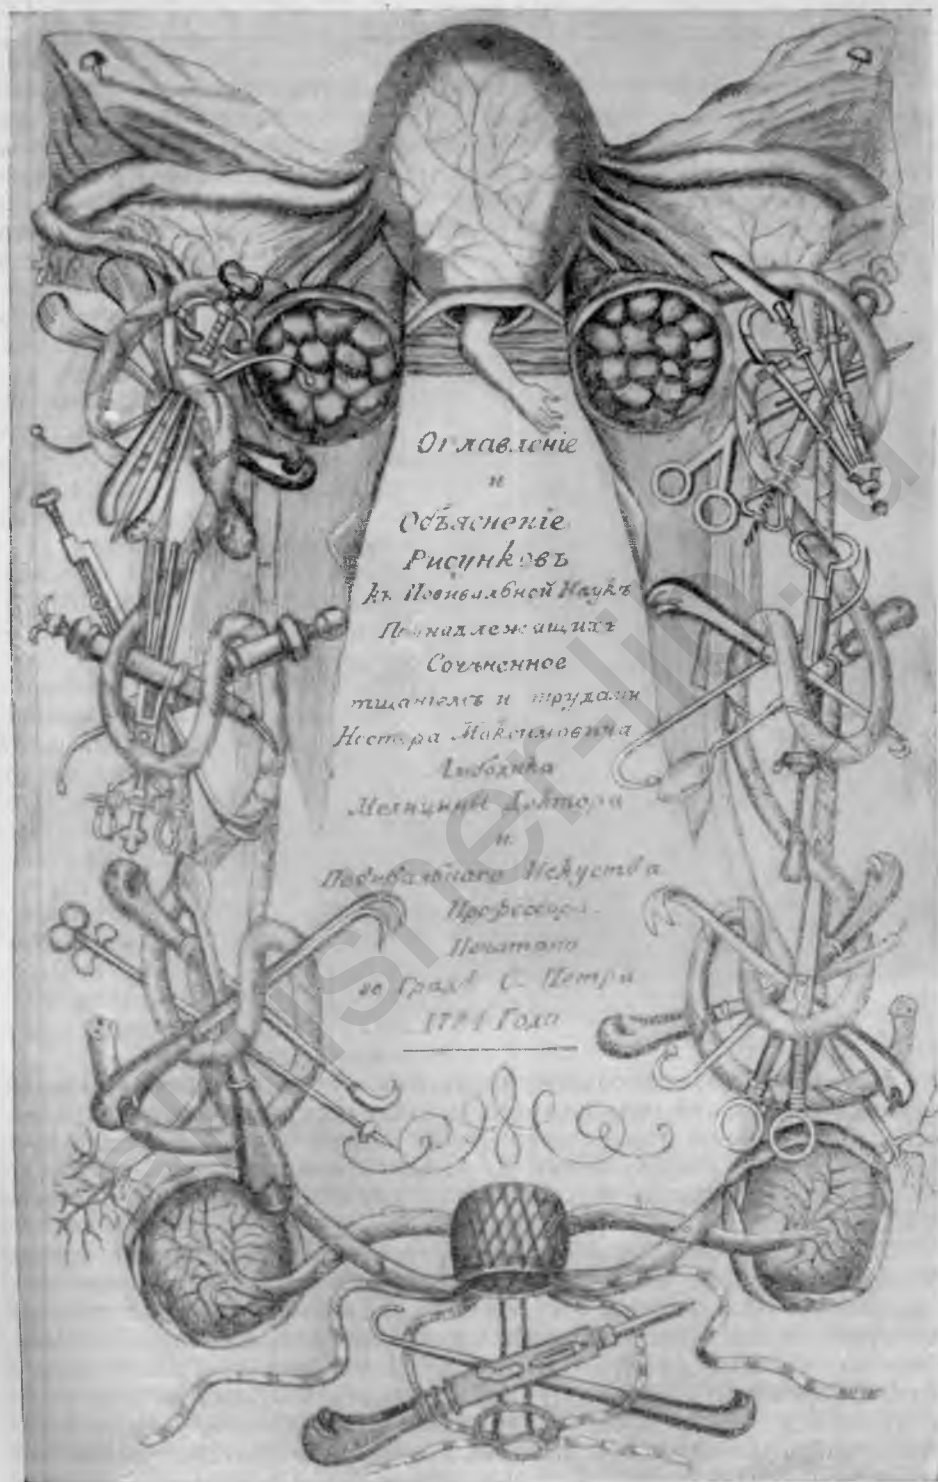 Оглавленіе
и
Объясненіе
Рисунковъ
къ Повивальной Наукѣ
Принадлежащихъ
Сочѣненное
тщаніемъ и трудами
Нестора Максимовича
Амбодика
Медицины Доктора
и
Повивальнаго Искуства
Професора.
Печатано
во Градѣ С. Петра
Года